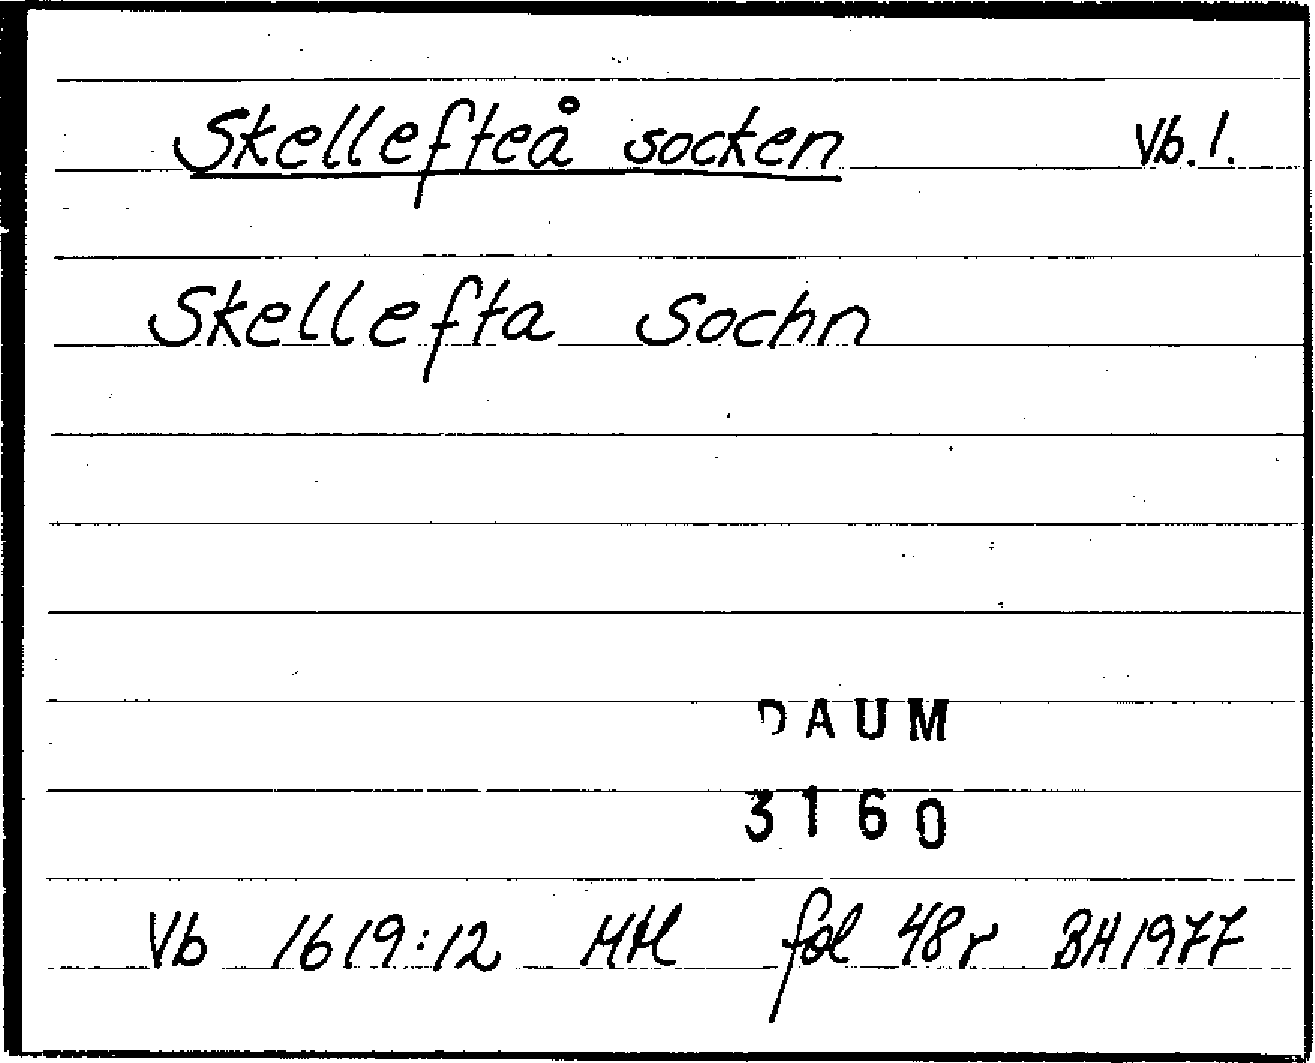 Skellefteå socken Vb. 1.
Skellefta Sochn
DAUM
3160
Vb 1619:12 HH fol 48r BH 1977